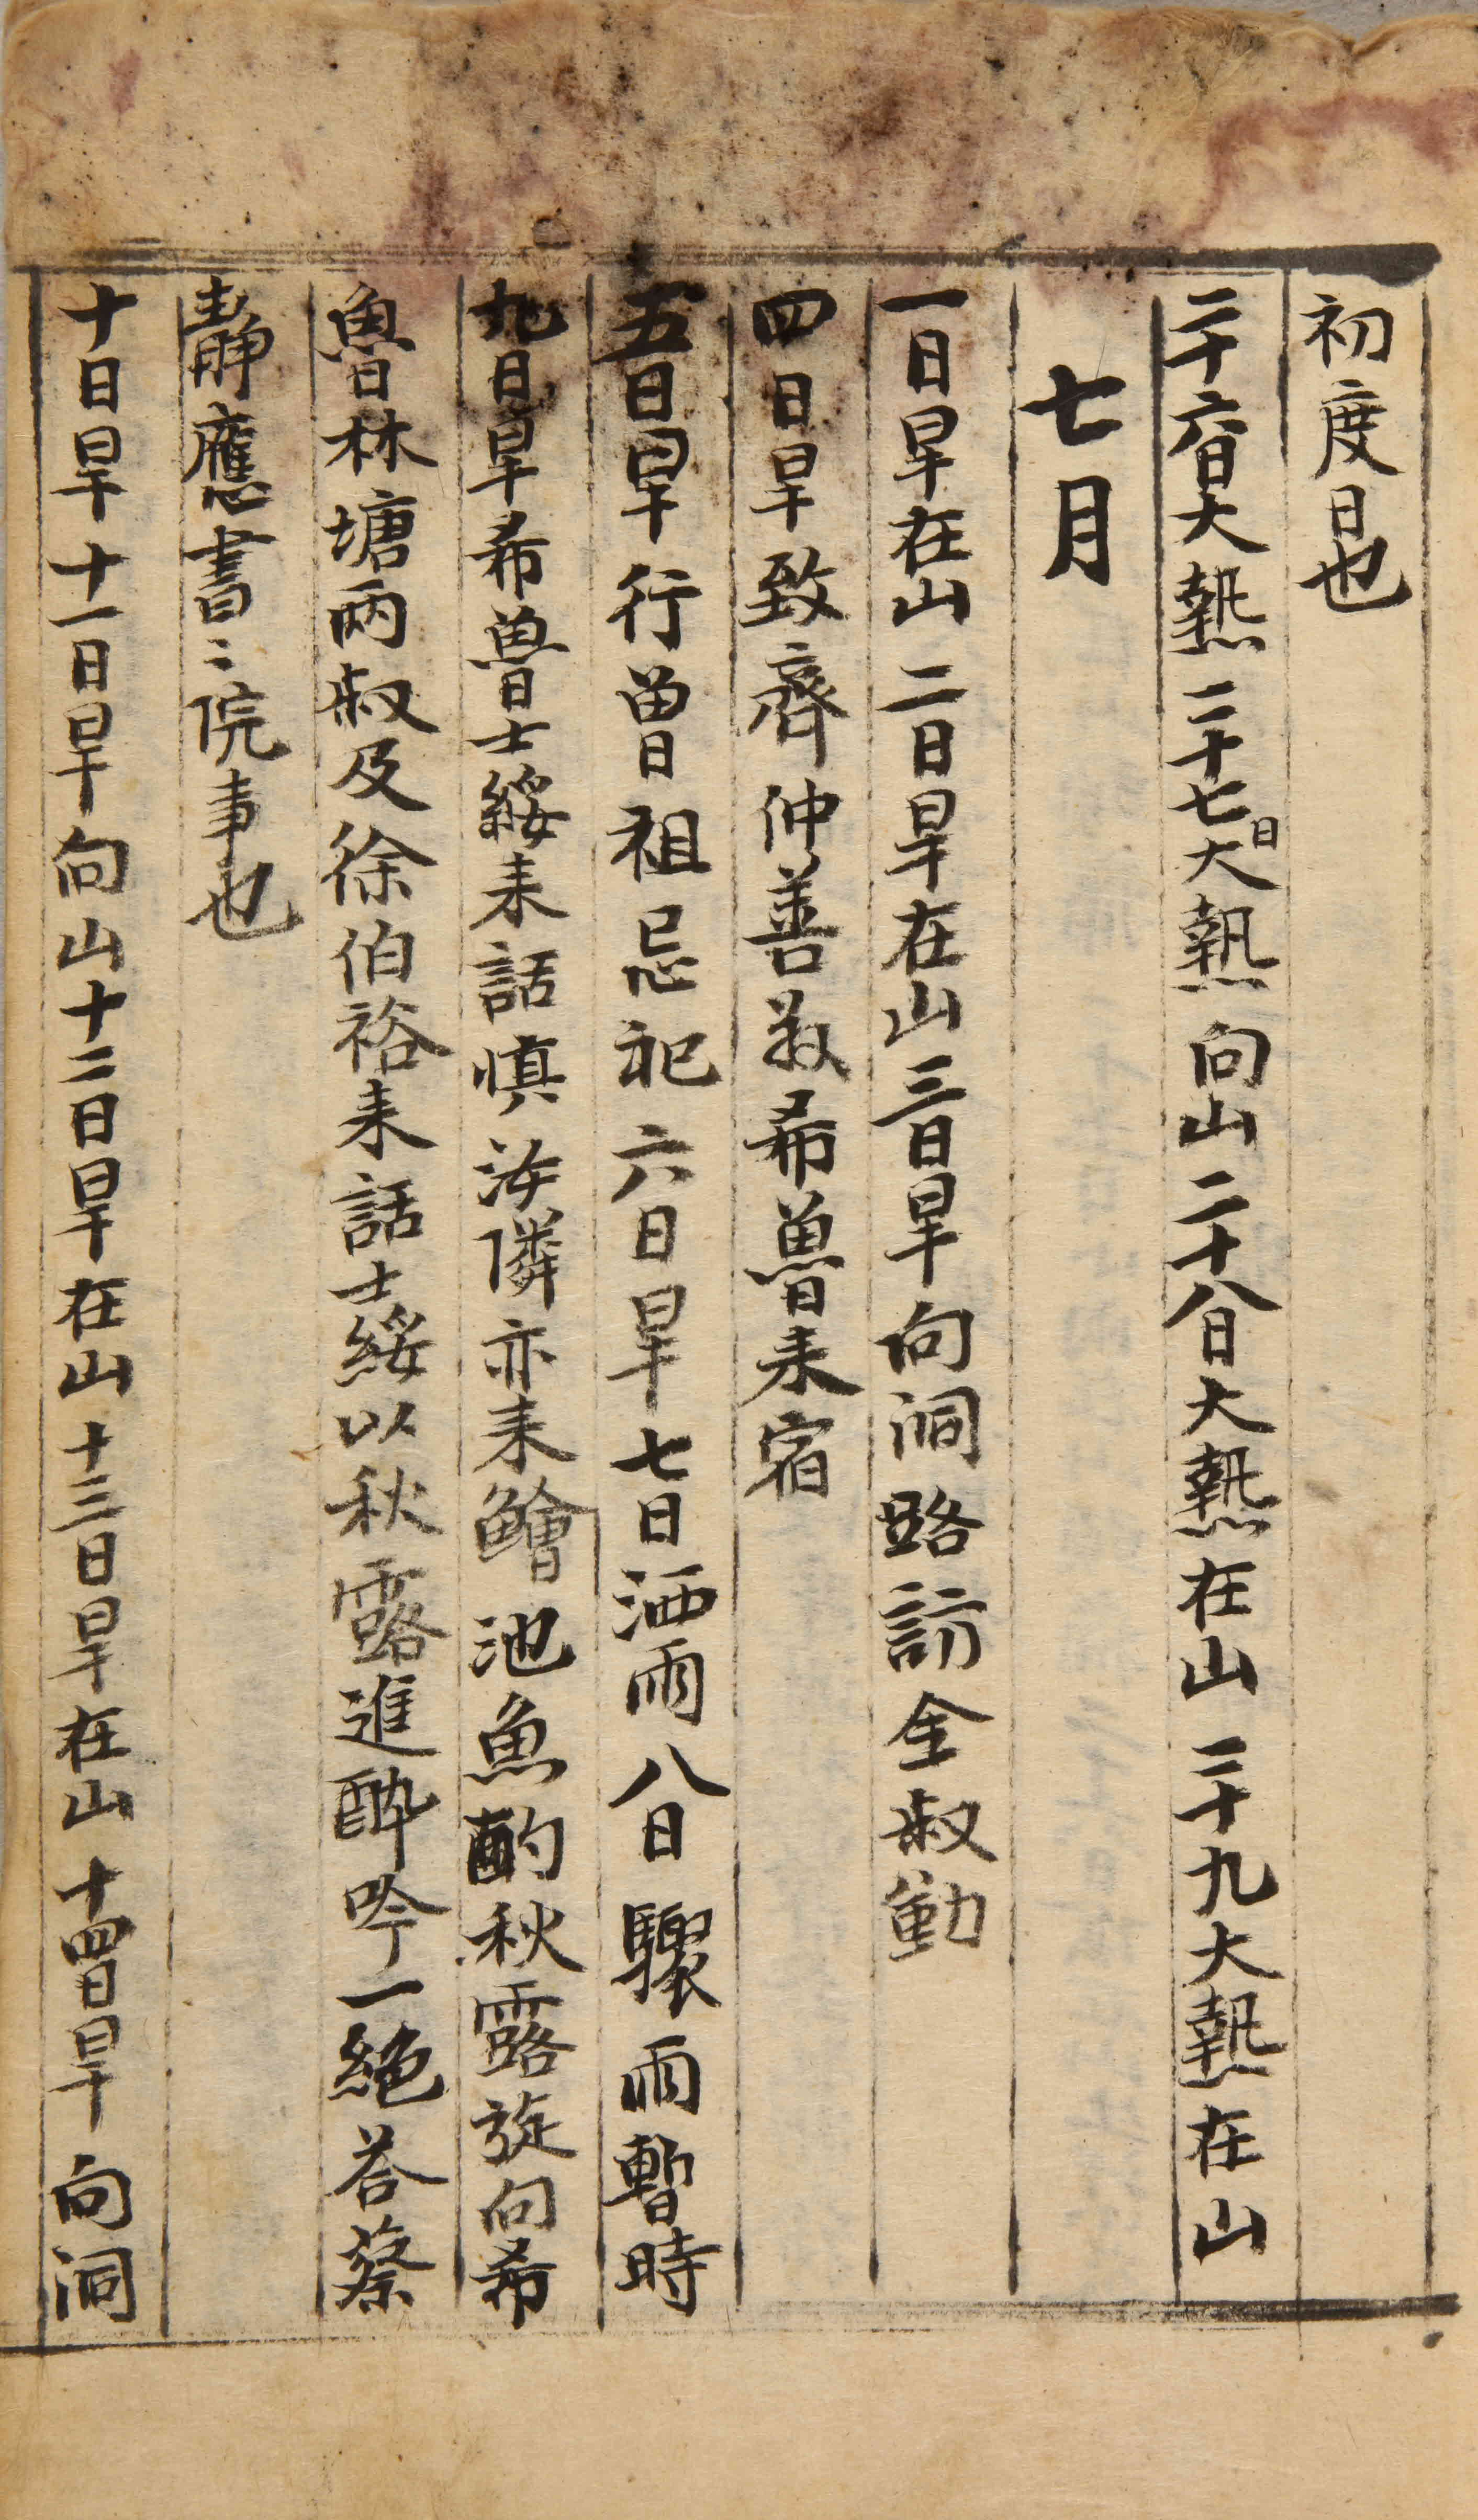 初度日也
二十六日大熱 二十七日大熱 向山 二十八日大熱在山 二十九大熱在山
七月
一日旱在山 二日旱在山 三日旱向洞路訪金叔勤
四日旱致齊仲善叔希魯来宿
五日旱行曽祖忌祀六日旱七日洒雨八日驟雨暫時
九日旱希魯士綏来話慎汝隣亦来鱠池魚酌秋露旋向希
魯林塘兩叔及徐伯裕来話士綏以秋露進酔吟一絶荅蔡
靜應書〻院事也
十日旱十一日旱向山十二日旱在山十三日旱在山十四日旱向洞